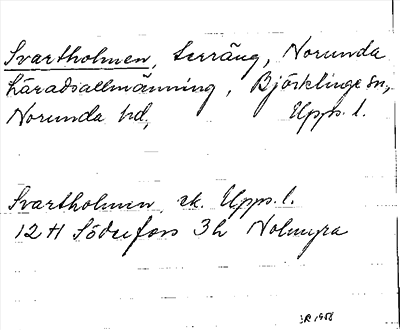 Svartholmen, terräng, Norunda
häradsallmänning, Björklinge sn,
Norunda hd, Upps. l.
Svartholmen ek. Upps. l.
12 H Söderfors 3h Nolmyra
1958